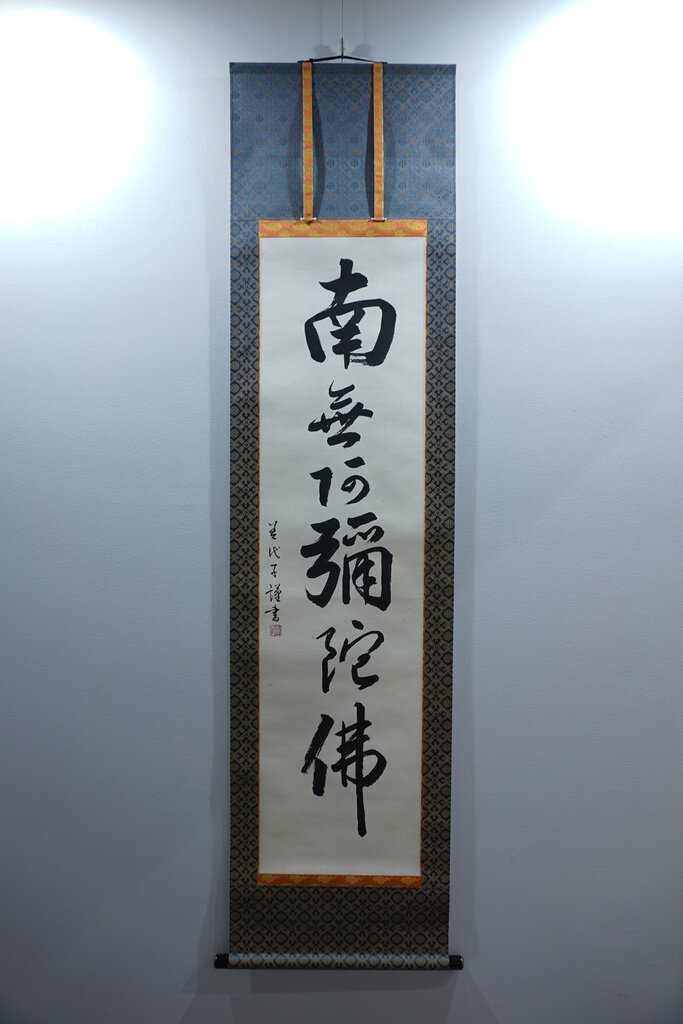 南無阿彌陀佛
代子謹書